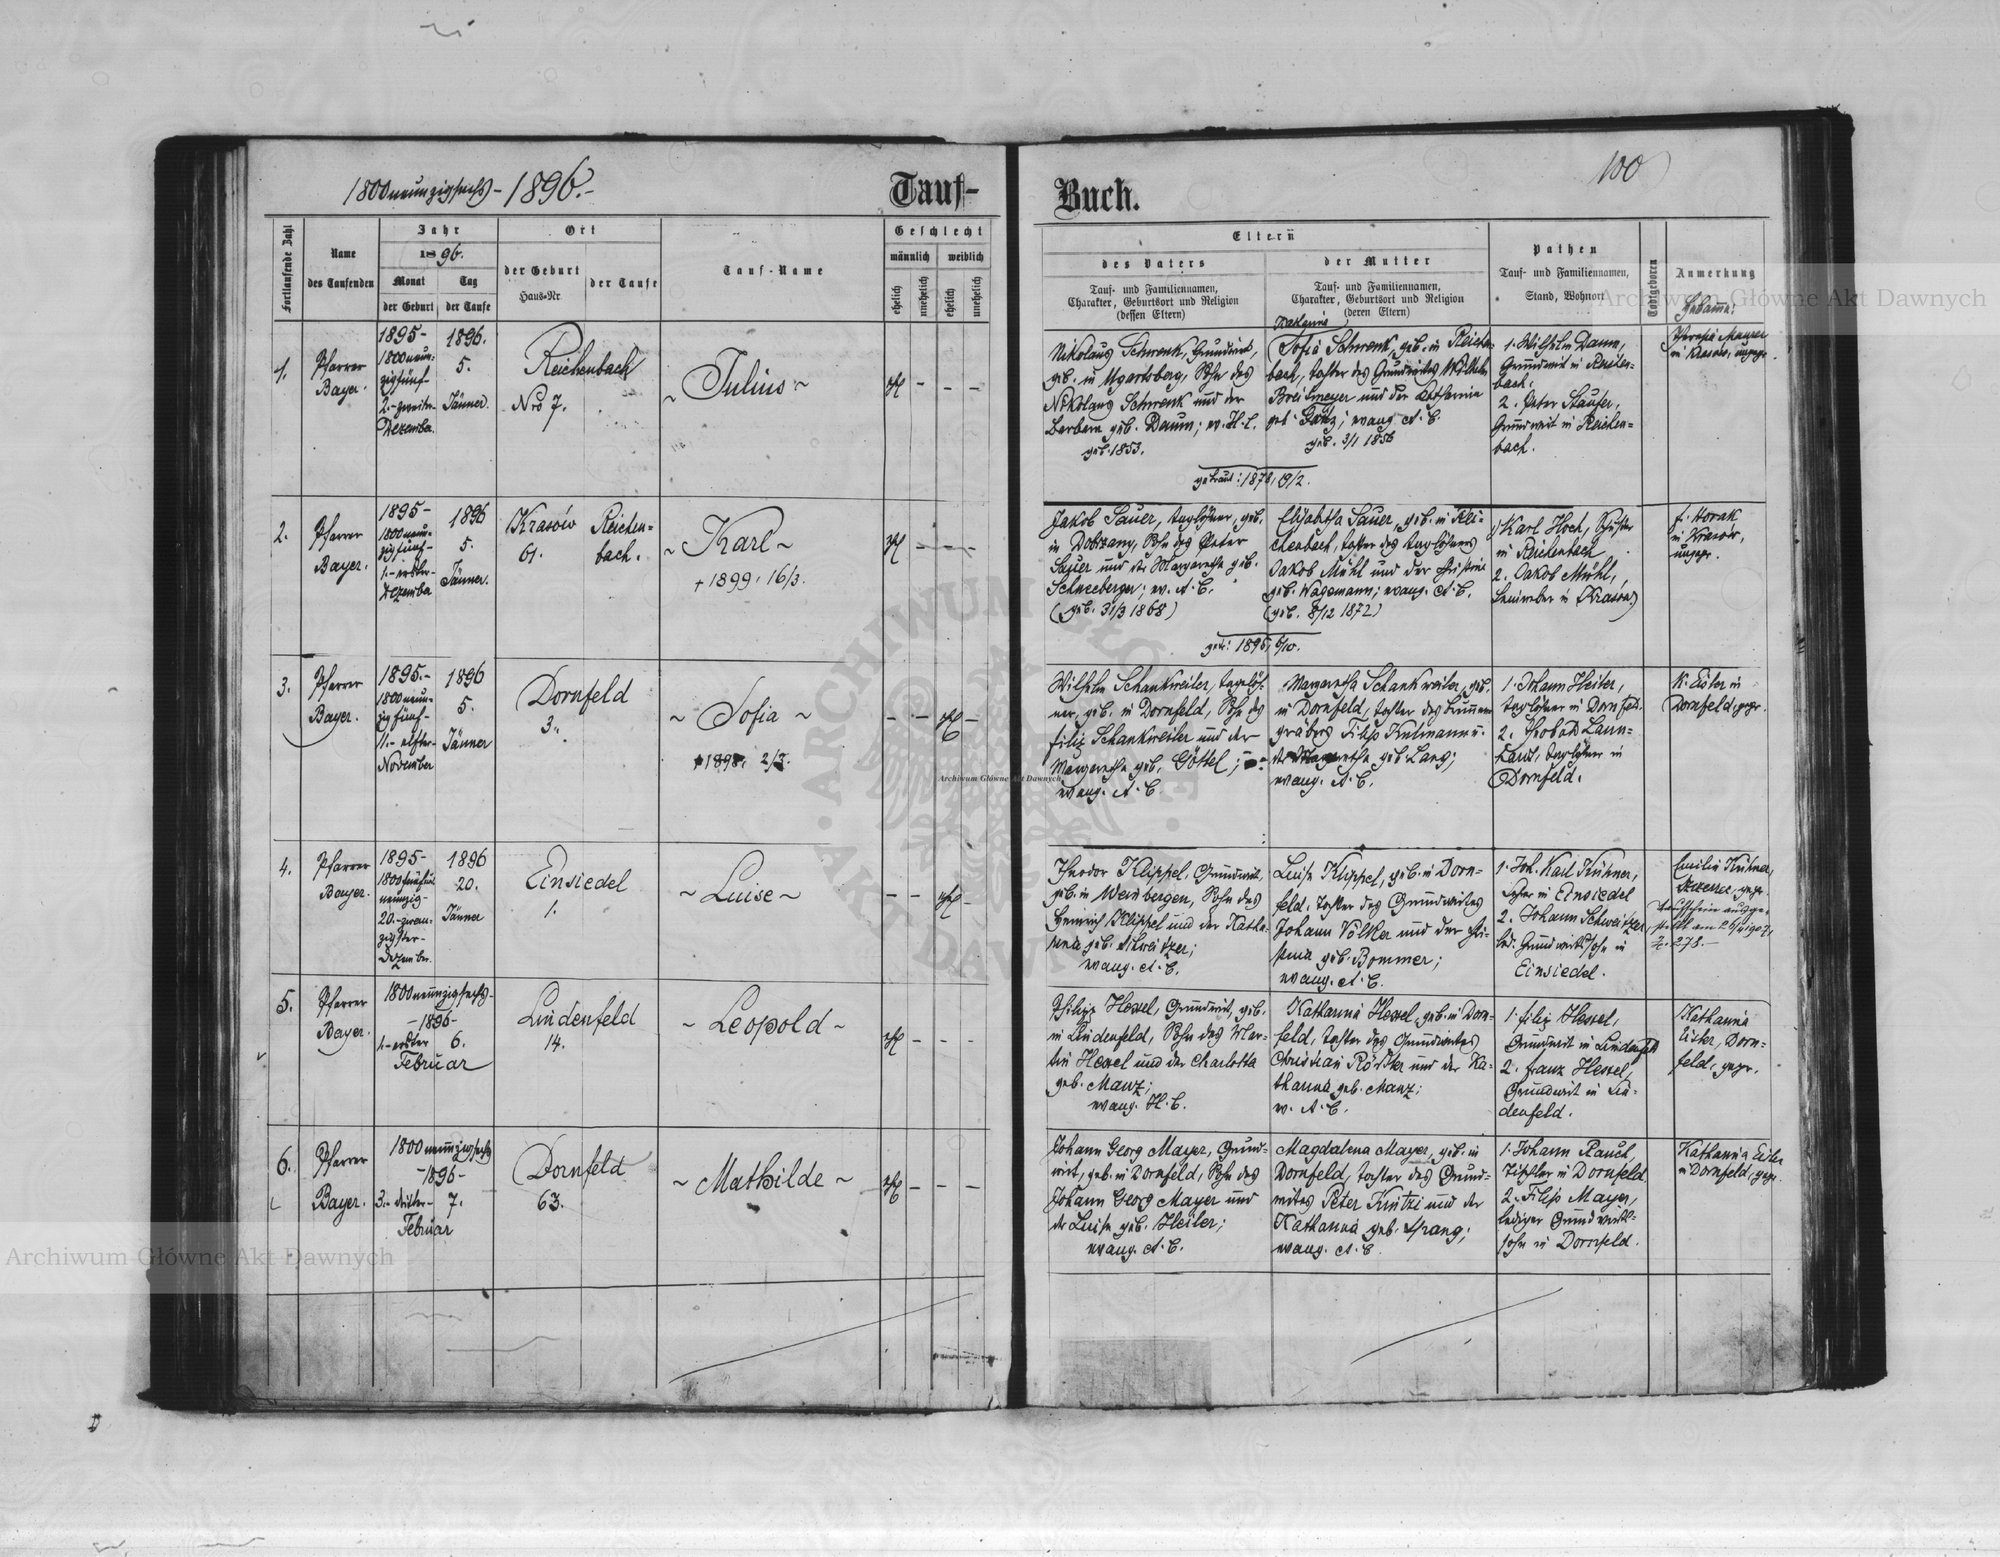 1800neunzigsechs - 1896.-
Tauf-
Fortlaufende Zahl
Name
des Taufenden
Jahr
1896.
Monat
der Geburt
Tag
der Taufe
Ort
der Geburt
Haus-Nr
der Taufe
Tauf-Name
Geschlecht
männlich
weiblich
ehelich
unehelich
ehelich
unehelich
1.
Pfarrer
Bayer.
1895-
1800neun-
zigfünf-
2.-zweiter-
Dezember
1896.
5.
Jänner.
Reichenbach
Nro 7.
~ Julius ~
2.
Pfarrer
Bayer.
1895-
1800neun-
zigfünf-
1.-erster-
Dezember
1896
5.
Jänner.
Krasów
61.
Reichen=
bach.
~ Karl ~
+ 1899, 16/3.
3.
Pfarrer
Bayer.
1895.-
1800neun-
zigfünf-
11.- elfter-
November
1896
5.
Jänner
Dornfeld
3.
~ Sofia ~
+ 1898, 2/3.
4.
Pfarrer
Bayer.
1895-
neunzig-
20.-zwan-
zigster-
Dezember.
1896
20.
Jänner
Einsiedel
1.
~ Luise ~
5.
Pfarrer
Bayer.
1800neunzigsechs-
-1896-
1.-erster
Februar
6.
Lindenfeld
14.
~ Leopold ~
6.
Pfarrer
Bayer.
1800neunzigsechs
-1896-
3.- dritter-
Februar
7.
Dornfeld
63.
~ Mathilde ~
Buch.
100
Eltern
des Vaters
Tauf- und Familiennamen,
Charakter, Geburtsort und Religion
(dessen Eltern)
der Mutter
Tauf- und Familiennamen,
Charakter, Geburtsort und Religion
(deren Eltern)
Pathen
Tauf- und Familiennamen,
Stand, Wohnort
Todtgeboren
Anmerkung
Hebamme:
Nikolaus Schwenk, Grundwirt,
geb. in Ugartsberg, Sohn des
Nikolaus Schwenk und der
Barbara geb. Daum; ev. H. C.
geb. 1853.
Katharina
Sofia Schwenk, geb. in Reichen-
bach, Tochter des Grundwirtes Wilhelm
Breitmeyer und der Katharina
geb. Götz; evang. A. C.
geb. 3/1 1856
getraut: 1878, 19/2.
1. Wilhelm Daum,
Grundwirt in Reichen-
bach.
2. Peter Staufer,
Grundwirt in Reichen=
bach.
Theresia Maurer
in Krasów, ungepr.
Jakob Sauer, Taglöhner, geb.
in Dobrzany, Sohn des Peter
Sauer und der Margaretha geb.
Schneeberger; ev. A. C.
(geb. 31/3 1868)
Elisabetha Sauer, geb. in Rei-
chenbach, Tochter des Taglöhners
Jakob Mühl und der Christine
geb. Wagemann; evang. A. C.
(geb. 8/12 1872)
getr: 1895, 6/10.
1) Karl Hoch, Schuster
in Reichenbach
2. Jakob Mühl,
in (Krasów)
F. Horak
in Krasów,
ungepr.
Wilhelm Schankweiler, Taglöh-
ner, geb. in Dornfeld, Sohn des
Filip Schankweiler und der
Margaretha geb. Göttel;
evang. A. C.
Margaretha Schankweiler, geb.
in Dornfeld, Tochter des Brunnen
gräbers Filip Kulmann u.
der Margaretha geb. Lang;
evang. A. C.
1. Johann Heiler,
Taglöhner in Dornfeld.
2. Theobald Lann-
hardt, Taglöhner in
Dornfeld.
K. Eisler in
Dornfeld, gepr.
Theodor Klippel, Grundwirt,
geb. in Weinbergen, Sohn des
Heinrich Klippel und der Katha-
rina geb. Schweitzer;
evang. A. C.
Luise Klippel, geb. in Dorn-
feld, Tochter des Grundwirtes
Johann Völker und der Chri-
stina geb. Bommer;
evang. A. C.
1. Joh. Karl Kühner,
Lehrer in Einsiedel
2. Johann Schweitzer,
led. Grundwirtssohn in
Einsiedel.
Emilie Kühner,
Szczerzec, gepr.
Taufschein ausge-
stellt am 26/4 1907,
Z. 278.-
Philipp Hessel, Grundwirt, geb.
in Lindenfeld, Sohn des Mar-
tin Hessel und der Charlotta
geb. Manz;
evang. H. C.
Katharina Hessel, geb. in Dorn-
feld, Tochter des Grundwirtes
Christian Röstler und der Ka-
tharina geb. Manz;
ev. A. C.
1. Filip Hessel,
Grundwirt in Lindenfeld
2. Franz Hessel,
Grundwirt in Lin-
denfeld.
Katharina
Eisler, Dorn-
feld, gepr.
Johann Georg Mayer, Grund-
wirt, geb. in Dornfeld, Sohn des
Johann Georg Mayer und
der Luise geb. Heiler;
evang. A. C.
Magdalena Mayer, geb. in
Dornfeld, Tochter des Grund-
wirtes Peter Kuntzi und der
Katharina geb. Sprang;
evang. A. C.
1. Johann Rauch,
Tischler in Dornfeld
2. Filip Mayer,
lediger Grundwirts-
sohn in Dornfeld.
Katharina Eisler
in Dornfeld, gepr.
Archiwum Główne Akt Dawnych
Archiwum Główne Akt Dawnych
Archiwum Główne Akt Dawnych